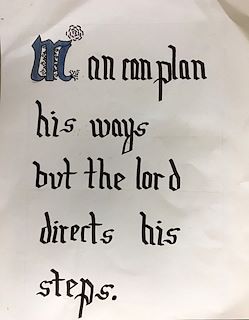 Man can plan
his ways
but the lord
directs his
steps.